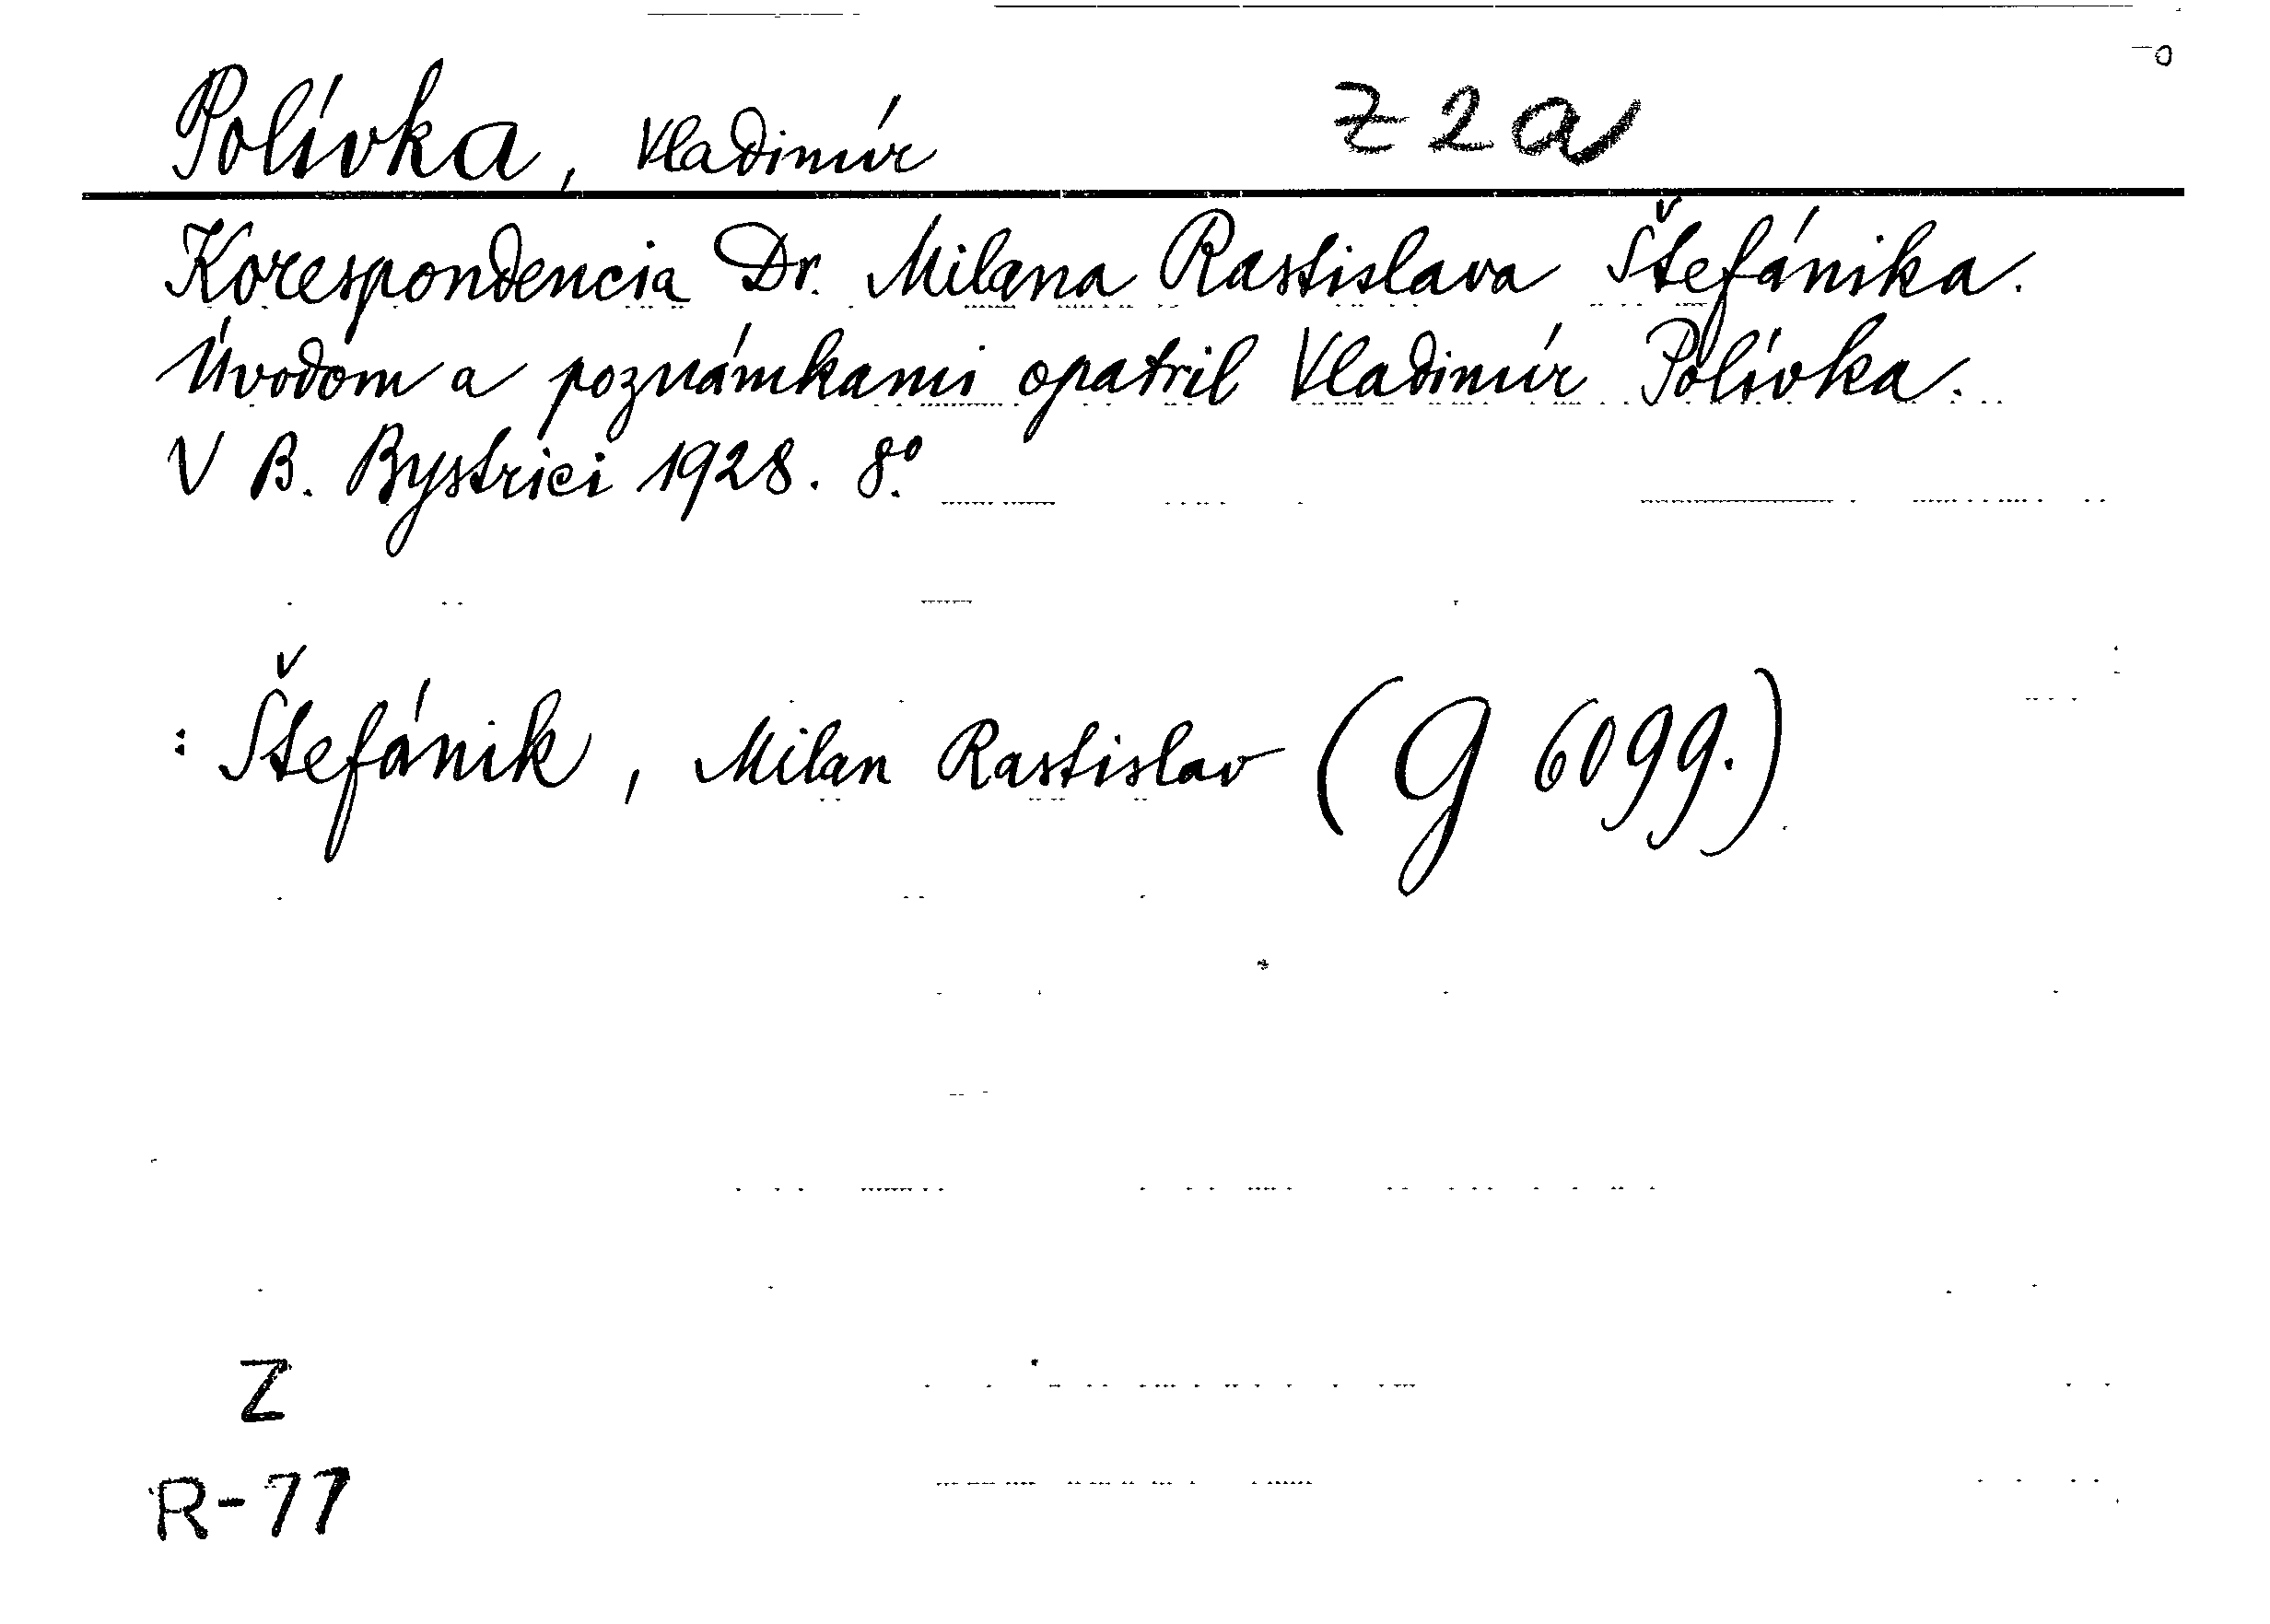 Polívka, Vladimír Z 2 a
Korespondencia Dr. Milana Rastislava Štefánika.
Úvodom a poznámkami opatril Vladimír Polívka.
V B. Bystrici 1928. 8º.
: Štefánik, Milan Rastislav (G 6099.)
Z
R-77